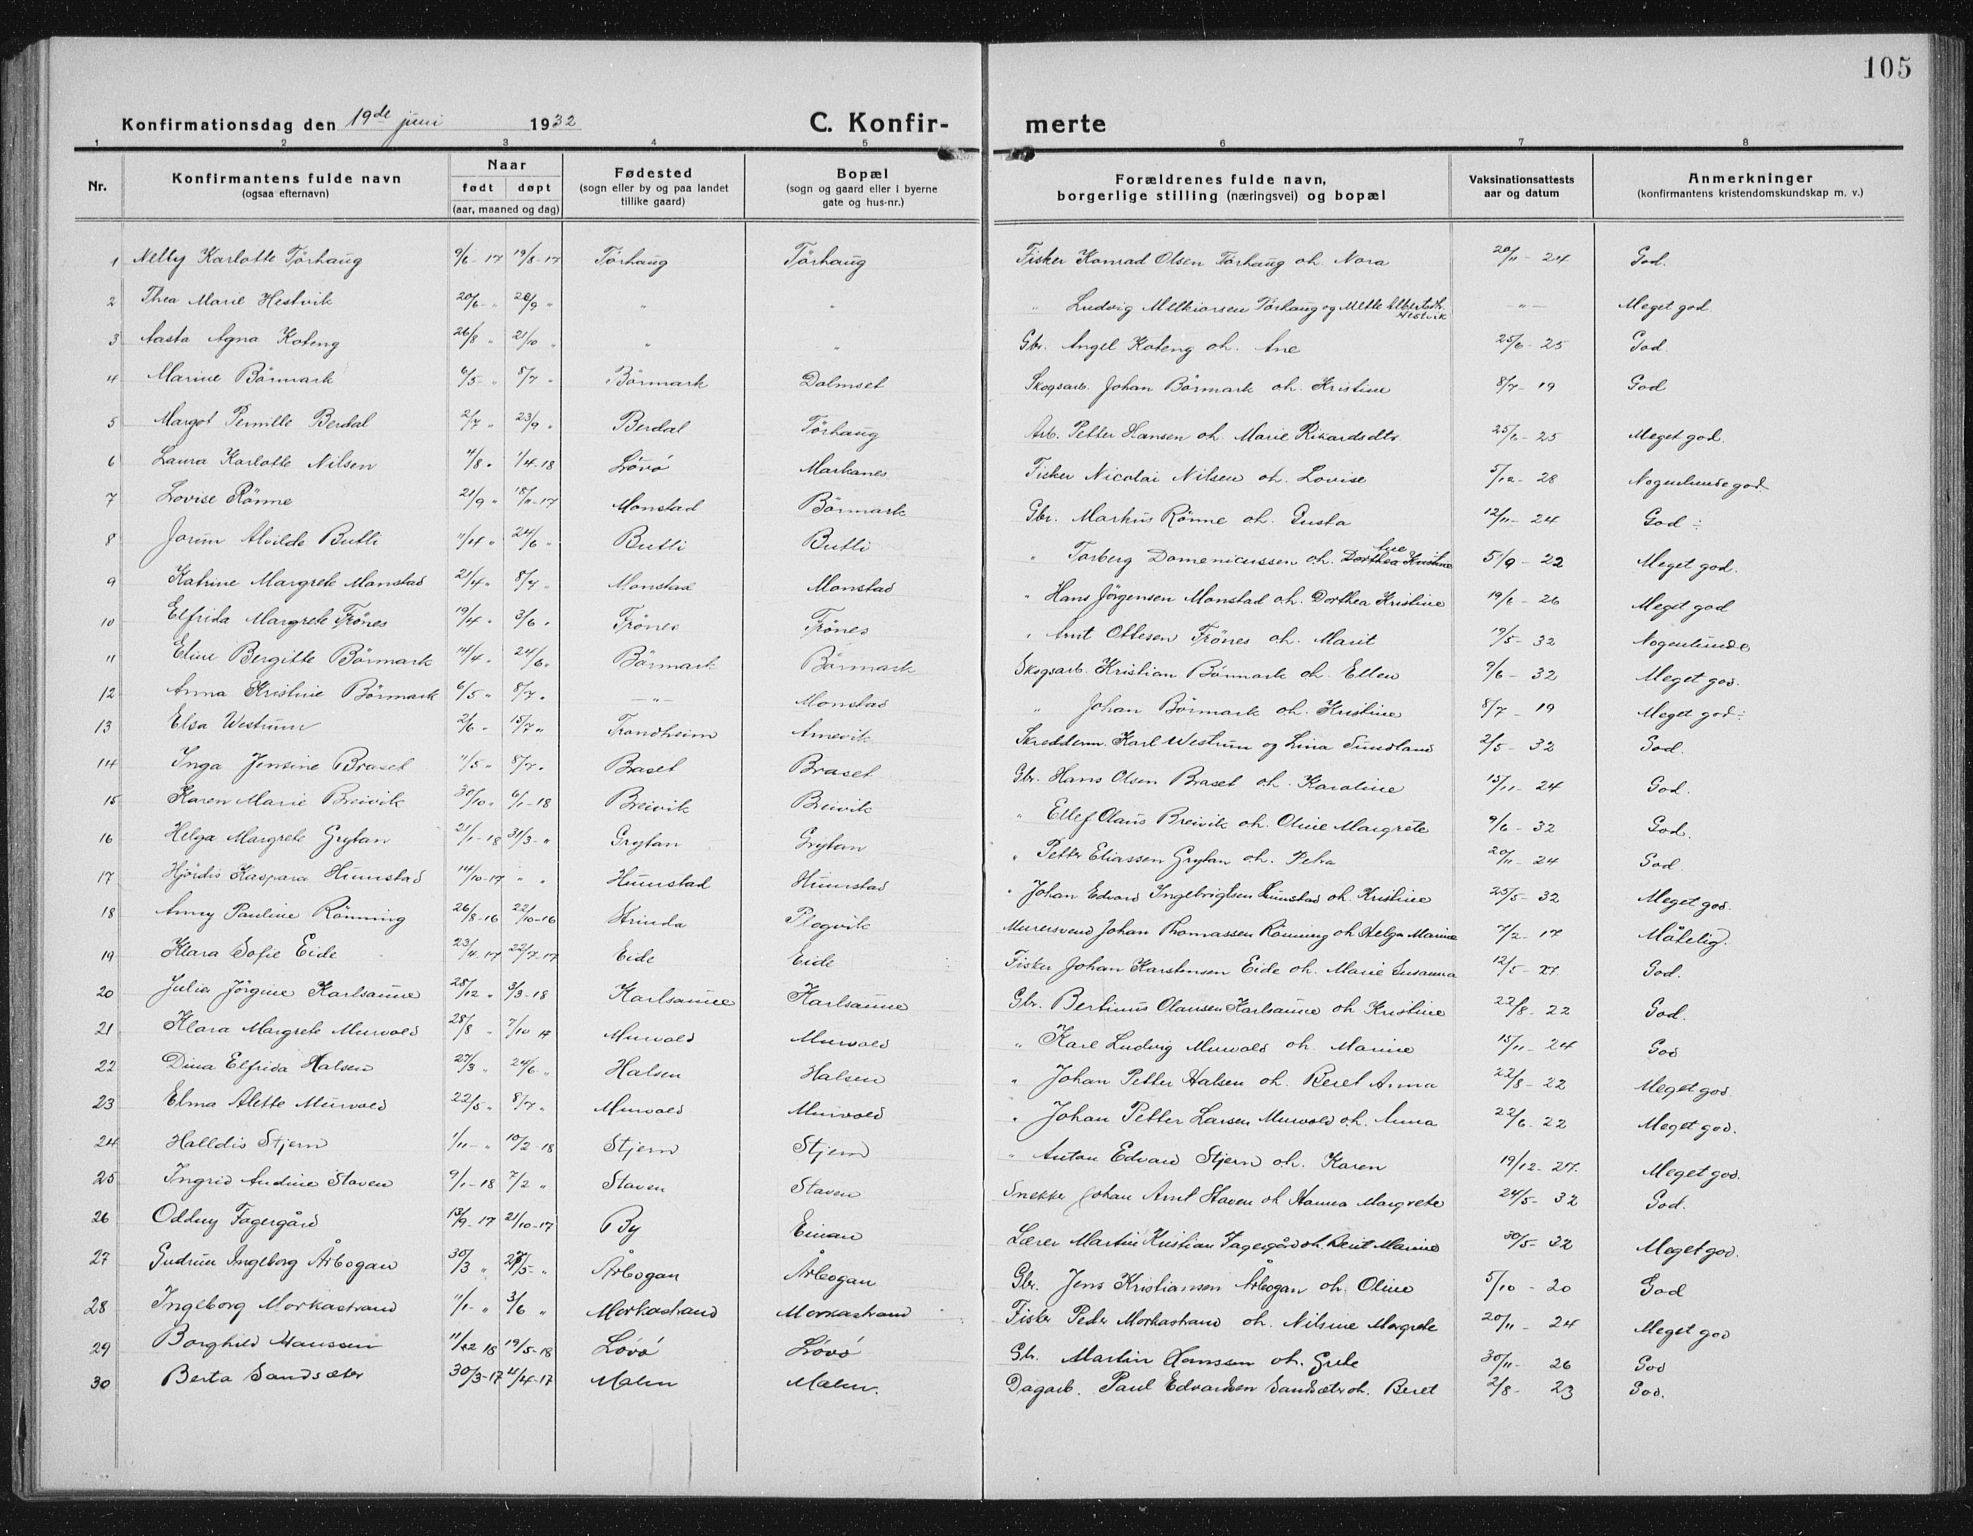 105
Konfirmationsdag den 19de juni 1932 C. Konfir- merte
1 2 3 4 5 6 7 8
Nr. Konfirmantens fulde navn (ogsaa efternavn) Naar født døpt (aar, maaned og dag) Fødested (sogn eller by og paa landet tillike gaard) Bopæl (sogn og gaard eller i byerne gate og hus-nr.) Forældrenes fulde navn, borgerlige stilling (næringsvei) og bopæl Vaksinationsattests aar og datum Anmerkninger (konfirmantens kristendomskundskap m. v.)
1 Nelly Karlotte Törhaug 9/6-17 19/8-17 Törhaug Törhaug Fisker Konrad Olsen Törhaug oh. Nora 20/11-24 God.
2 Thea Marie Hestvik 20/6 - " 20/9 " " " " Ludvig Melkiorsen Törhaug og Mette Albertsdtr. Hestvik - " - Meget god
3 Aasta Agna Koteng 26/8 " 21/10 " " " Gbr. Angel Koteng oh. Ane 25/6-25 God.
4 Marine Börmark 6/5- " 8/7 " Börmark Dalmset Skogsarb. Johan Börmark oh. Kristine 8/7-19 God
5 Margot Pernille Berdal 2/7 " 23/9 " Berdal Törhaug Arb. Petter Hansen oh. Marie Rikardsdtr. 25/6-25 Meget god.
6 Laura Karlotte Nilsen 4/8 " 1/4-18 Lövö Markanes Fisker Nicolai Nilsen oh. Lovise 5/12-28 Nogenlunde god
7 Lovise Rönne 21/9 " 18/11-17 Monstad Börmark Gbr. Markus Rönne oh. Gusta 12/11-24 God ÷
8 Jorun Alvilde Butli 11/4 " 24/6 " Butli Butli " Torberg Domenicussen oh. Dorthea Kristine 5/9-22 Meget god.
9 Katrine Margrete Monstad 21/4 " 8/7 " Monstad Monstad " Hans Jörgensen Monstad oh. Dorthea Kristine 19/6-26 Meget god
10 Elfrida Margrete Frönes 19/4 " 3/6 " Frönes Frönes " Arnt Ottesen Frönes oh. Marit 19/5-32 Nogenlunde
11 Eline Bergitte Börmark 14/4 " 24/6 " Börmark Börmark Skogsarb. Kristian Börmark oh. Ellen 9/6-32 Meget god.
12 Anna Kristine Börmark 6/5 " 8/7 " - " - Monstad " Johan Börmark oh. Kristine 8/7-19 Meget god ÷
13 Elsa Westrum 2/6 " 15/7 " Trondheim Arnevik Skredderm. Karl Westrum og Lina Sundland 2/5-32 God.
14 Inga Jensine Braset 11/5 " 8/7 " Braset Braset Gbr. Hans Olsen Braset oh. Karoline 15/11-24 God.
15 Karen Marie Breivik 30/10 " 6/1-18 Breivik Breivik " Ellef Olaus Breivik oh. Oline Margrete 9/6-32 God.
16 Helga Margrete Grytan 21/1-18 31/3-" Grytan Grytan " Petter Eliassen Grytan oh. Petra 20/11-24 God.
17 Hjördis Kaspara Humstad 14/10-17 " " Humstad Humstad " Johan Edvard Ingebrigtsen Humstad oh. Kristine 25/5-32 Meget god.
18 Anny Pauline Rönning 26/8-16 22/10-16 Strinda Plogvik Murersvend Johan Thomassen Rönning oh Helga Marine 7/2-17 Måtelig.
19 Klara Sofie Eide 23/4-17 22/7-17 Eide Eide Fisker Johan Karstensen Eide oh. Marie Susanna 12/5-27 God.
20 Julia Jörgine Karlsaune 28/12 " 3/3-18 Karlsaune Karlsaune Gbr. Bertinus Olausen Karlsaune oh Kristine 22/8-22 God.
21 Klara Margrete Murvold 28/8 " 7/10 17 Murvold Murvold " Karl Ludvig Murvold oh. Marine 15/11-24 God
22 Dina Elfrida Halsen 27/3 " 24/6 " Halsen Halsen " Johan Petter Halsen oh. Beret Anna 22/8-22 Meget god.
23 Elma Alette Murvold 22/5 " 8/7 " Murvold Murvold " Johan Petter Larsen Murvold o.h. Anna 22/6-22 Meget god.
24 Halldis Stjern 1/11- " 10/2-18 Stjern Stjern " Anton Edvard Stjern oh. Karen 19/12-27. Meget god.
25 Ingrid Andine Staven 9/1-18 7/2 " Staven Staven Snekker Johan Arnt Staven oh Hanna Margrete 24/5-32 God.
26 Oddny Fagergård 13/9-17 21/10-17 By Einan Lærer Martin Kristian Fagergård oh. Berit Marine 30/5-32 Meget god.
27 Gudrun Ingeborg Årbogan 30/3 " 27/5- " Årbogan Årbogan Gbr. Jens Kristiansen Årbogan oh. Oline 5/10-20 God
28 Ingeborg Morkastrand 11/1- " 3/6 " Morkastrand Morkastrand Fisker Peder Morkastrand oh. Nilsine Margrete 20/11-24 Meget god
29 Borghild Hanssen 11/12 18 19/5-18 Lövö Lövö Gbr. Martin Hanssen oh. Grete 30/11-26 God
30 Berta Sandsæter 30/3-17 21/4-17 Malm Malm. Dagarb. Paul Edvardsen Sandsæter oh. Beret 2/8-23 God.